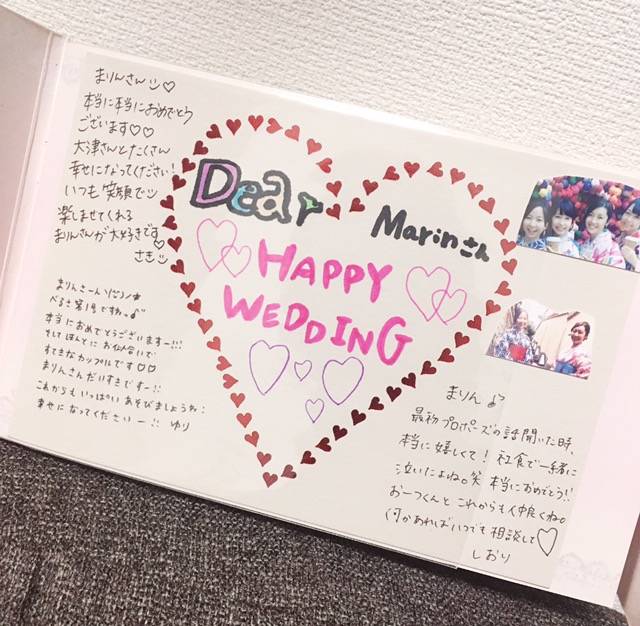 まりんさん
本当に本当におめでとう
ございます♡♡
大津さんとたくさん
幸せになってください!
いつも笑顔で
楽しませてくれる
まりんさんが大好きです
さき
Dear
Marinさん
HAPPY
WEDDING
まりんさーん
べるき第1号ですね。
本当におめでとうございますー!!
そしてほんとにお似合いで
すてきなカップルです♡♡
まりんさんだいすきですー!!
これからもいっぱいあそびましょうね!
幸せになってくださいー!! ゆり
まりん
最初プロポーズの話聞いた時、
本当に嬉しくて!社食で一緒に
泣いたよね。笑 本当におめでとう!!
おーつくんとこれからも仲良くね。
何かあればいつでも相談して♡
しおり